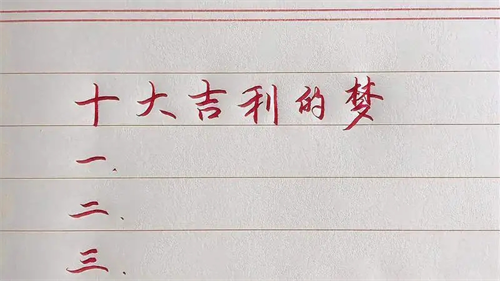 十大吉利的梦
一、
二、
三、